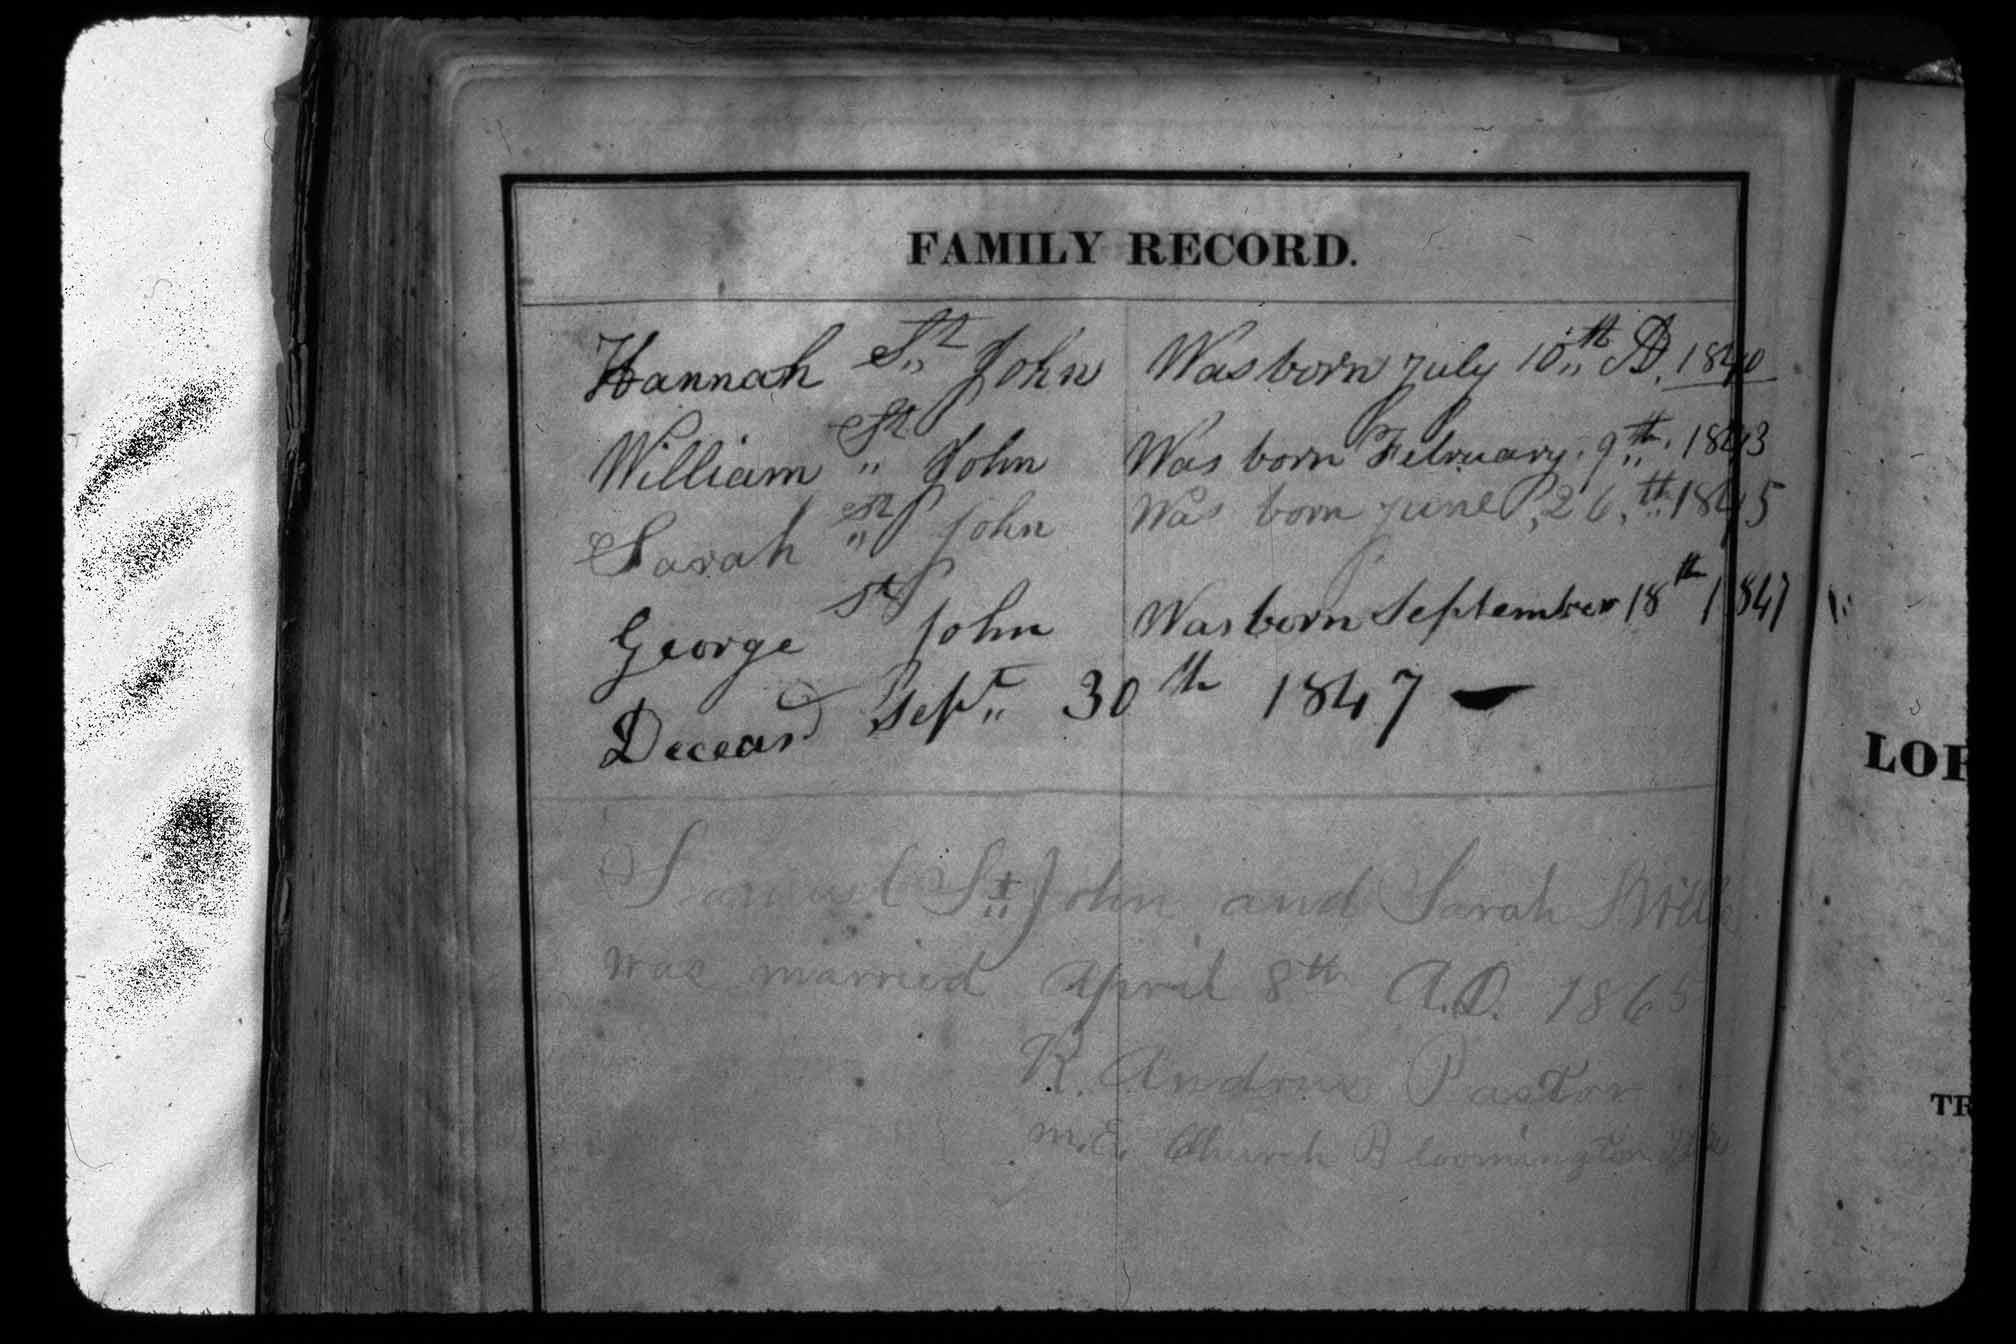 FAMILY RECORD.
Hannah St. John Was born July 10th AD. 1840
William St. John Was born February. 9th. 1843
Sarah St. John Was born June, 26, th 1845
George St John Was born September 18th 1847
Deceasd Sept. 30th 1847 —
Samuel St. John and Sarah
was married April 8th A.D. 1865
R. Andrus Pastor
M.E. Church Bloomington
LOR
TR